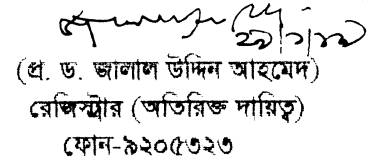 ২১/১/১৯
(প্র. ড. জালাল উদ্দিন আহমেদ)
রেজিস্ট্রার (অতিরিক্ত দায়িত্ব)
ফোন-৯২০৫৩২৩